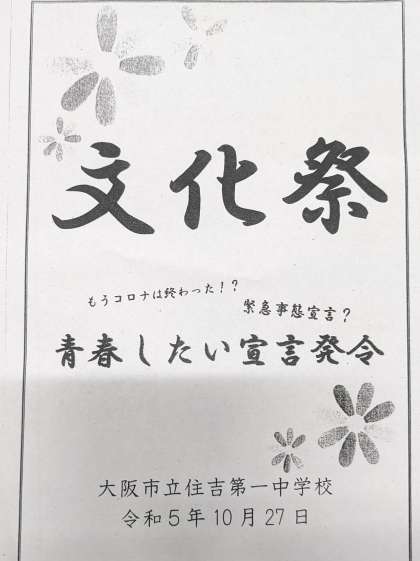 文化祭
もうコロナは終わった！？
緊急事態宣言？
青春したい宣言発令
大阪市立住吉第一中学校
令和５年１０月２７日